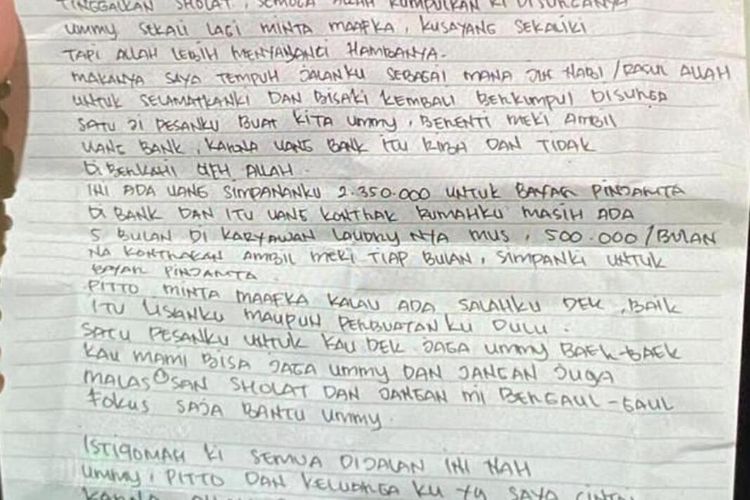 TINGGALKAN SHOLAT, SEMOGA ALLAH KUMPULKAN KI DISURGANYA
UMMY SEKALI LAGI MINTA MAAFKA, KUSAYANG SEKALIKI
TAPI ALLAH LEBIH MENYAYANGI HAMBANYA.
MAKANYA SAYA TEMPUH JALANKU SEBAGAI MANA JLN NABI/RASUL ALLAH
UNTUK SELAMATKANKI DAN BISAKI KEMBALI BERKUMPUL DISURGA
SATU JI PESANKU BUAT KITA UMMY, BERENTI MEKI AMBIL
UANG BANK, KARNA UANG BANK ITU RIBA DAN TIDAK
DI BERKAHI OLEH ALLAH.
INI ADA UANG SIMPANANKU 2.350.000 UNTUK BAYAR PINJAMTA
DI BANK DAN ITU UANG KONTRAK RUMAHKU MASIH ADA
5 BULAN DI KARYAWAN LAUDRY NYA MUS, 500.000/BULAN
NA KONTRAKAN AMBIL MEKI TIAP BULAN, SIMPANKI UNTUK
BAYAR PINJAMTA
PITTO MINTA MAAFKA KALAU ADA SALAHKU DEK, BAIK
ITU LISANKU MAUPUN PERBUATAN KU DULU.
SATU PESANKU UNTUK KAU DEK JAGA UMMY BAEK-BAEK
KAU MAMI BISA JAGA UMMY DAN JANGAN JUGA
MALAS SAN SHOLAT DAN JANGAN MI BERGAUL-GAUL
FOKUS SAJA BANTU UMMY.
ISTIQOMAH KI SEMUA DIJALAN INI NAH
UMMY, PITTO DAN KELUARGA KU YG SAYA CINTAI
KARNA